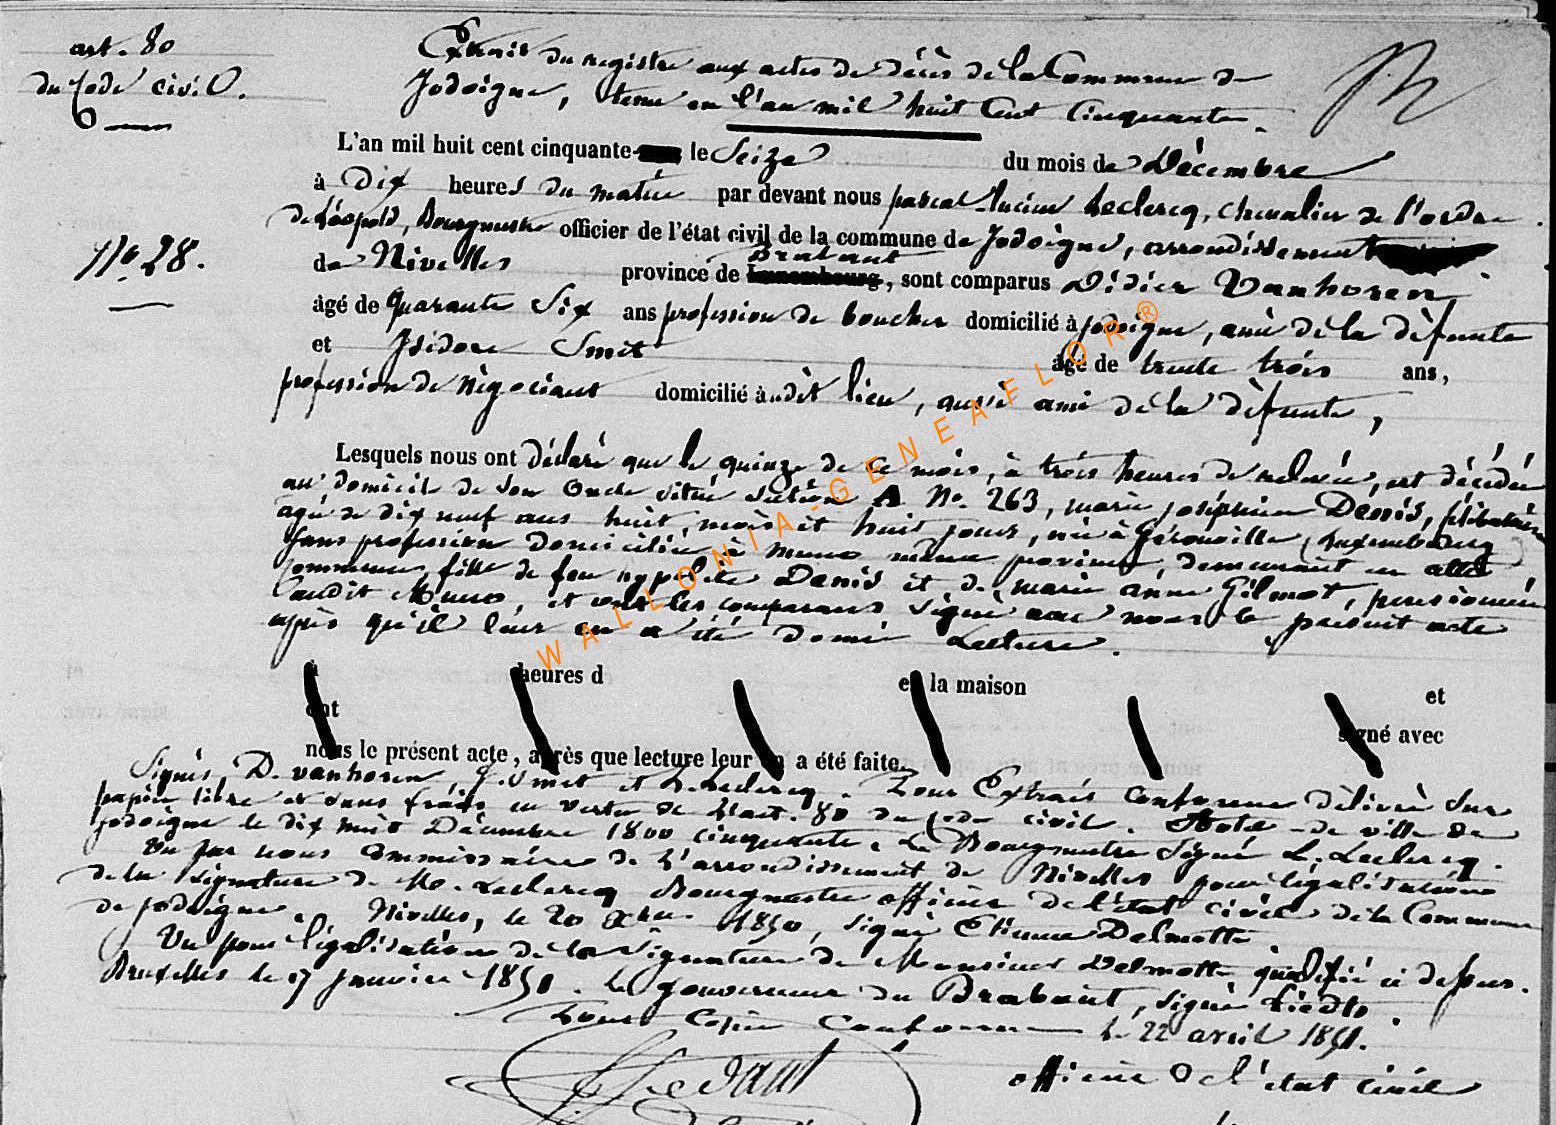 art. 80
du Code civil.
Extrait du registre aux actes de décès de la Commune de
Jodoigne, tenu en l'an mil huit Cent Cinquante.
L'an mil huit cent cinquante le Seize du mois de Décembre
à dix heures du matin par devant nous pascal-lucien Leclercq, chevalier de l'ordre
de Léopold, Bourgmestre officier de l'état civil de la commune de Jodoigne, arrondissement
N° 28.
Brabant
de Nivelles province de Luxembourg, sont comparus Didier Vanhoren,
âgé de quarante Six ans profession de boucher domicilié à Jodoigne, ami de la défunte
et Isidore Smet âgé de trente trois ans,
profession de négociant domicilié à udit lieu, aussi ami de la défunte,
Lesquels nous ont déclaré que le quinze de ce mois, à trois heures de relevée, est décédée
au domicile de son Oncle situé section A N°. 263, marie joséphine Denis, célibataire
agée de dix neuf ans huit mois et huit jours, née à Gérouville (Luxembourg)
sans profession domiciliée à muno même province, demeurant en cette
commune, fille de feu hypolite Denis et de marie anne Gilmot, pensionnée
audit Muno, et ont les comparans signé avec nous le présent acte
après qu'il leur en a été donné Lecture.
à heures d en la maison et
ont signé avec
nous le présent acte, après que lecture leur en a été faite.
Signés, D. vanhoren, J. Smet et L. Leclercq. Pour Extrait Conforme délivré sur
papier libre et sans frais en vertu de l'art. 80 du code civil. Hotel-de ville de
jodoigne le dix huit Décembre 1800 cinquante. Le Bourgmestre signé L. Leclercq.
Vu par nous Commissaire de l'arrondissement de Nivelles pour légalisation
de la signature de Mr. Leclercq Bourgmestre officier de l'état civil de la Commune
de jodoigne. Nivelles, le 20 Xbre 1850, signé Etienne Delmotte
Vu pour légalisation de la signature de Monsieur Delmotte qualifié ci dessus.
Bruxelles le 17 janvier 1851. Le gouverneur du Brabant, signé Liedts.
Pour Copie Conforme le 22 avril 1851.
officier de l'état civil
WALLONIA-GENEAFLOR®